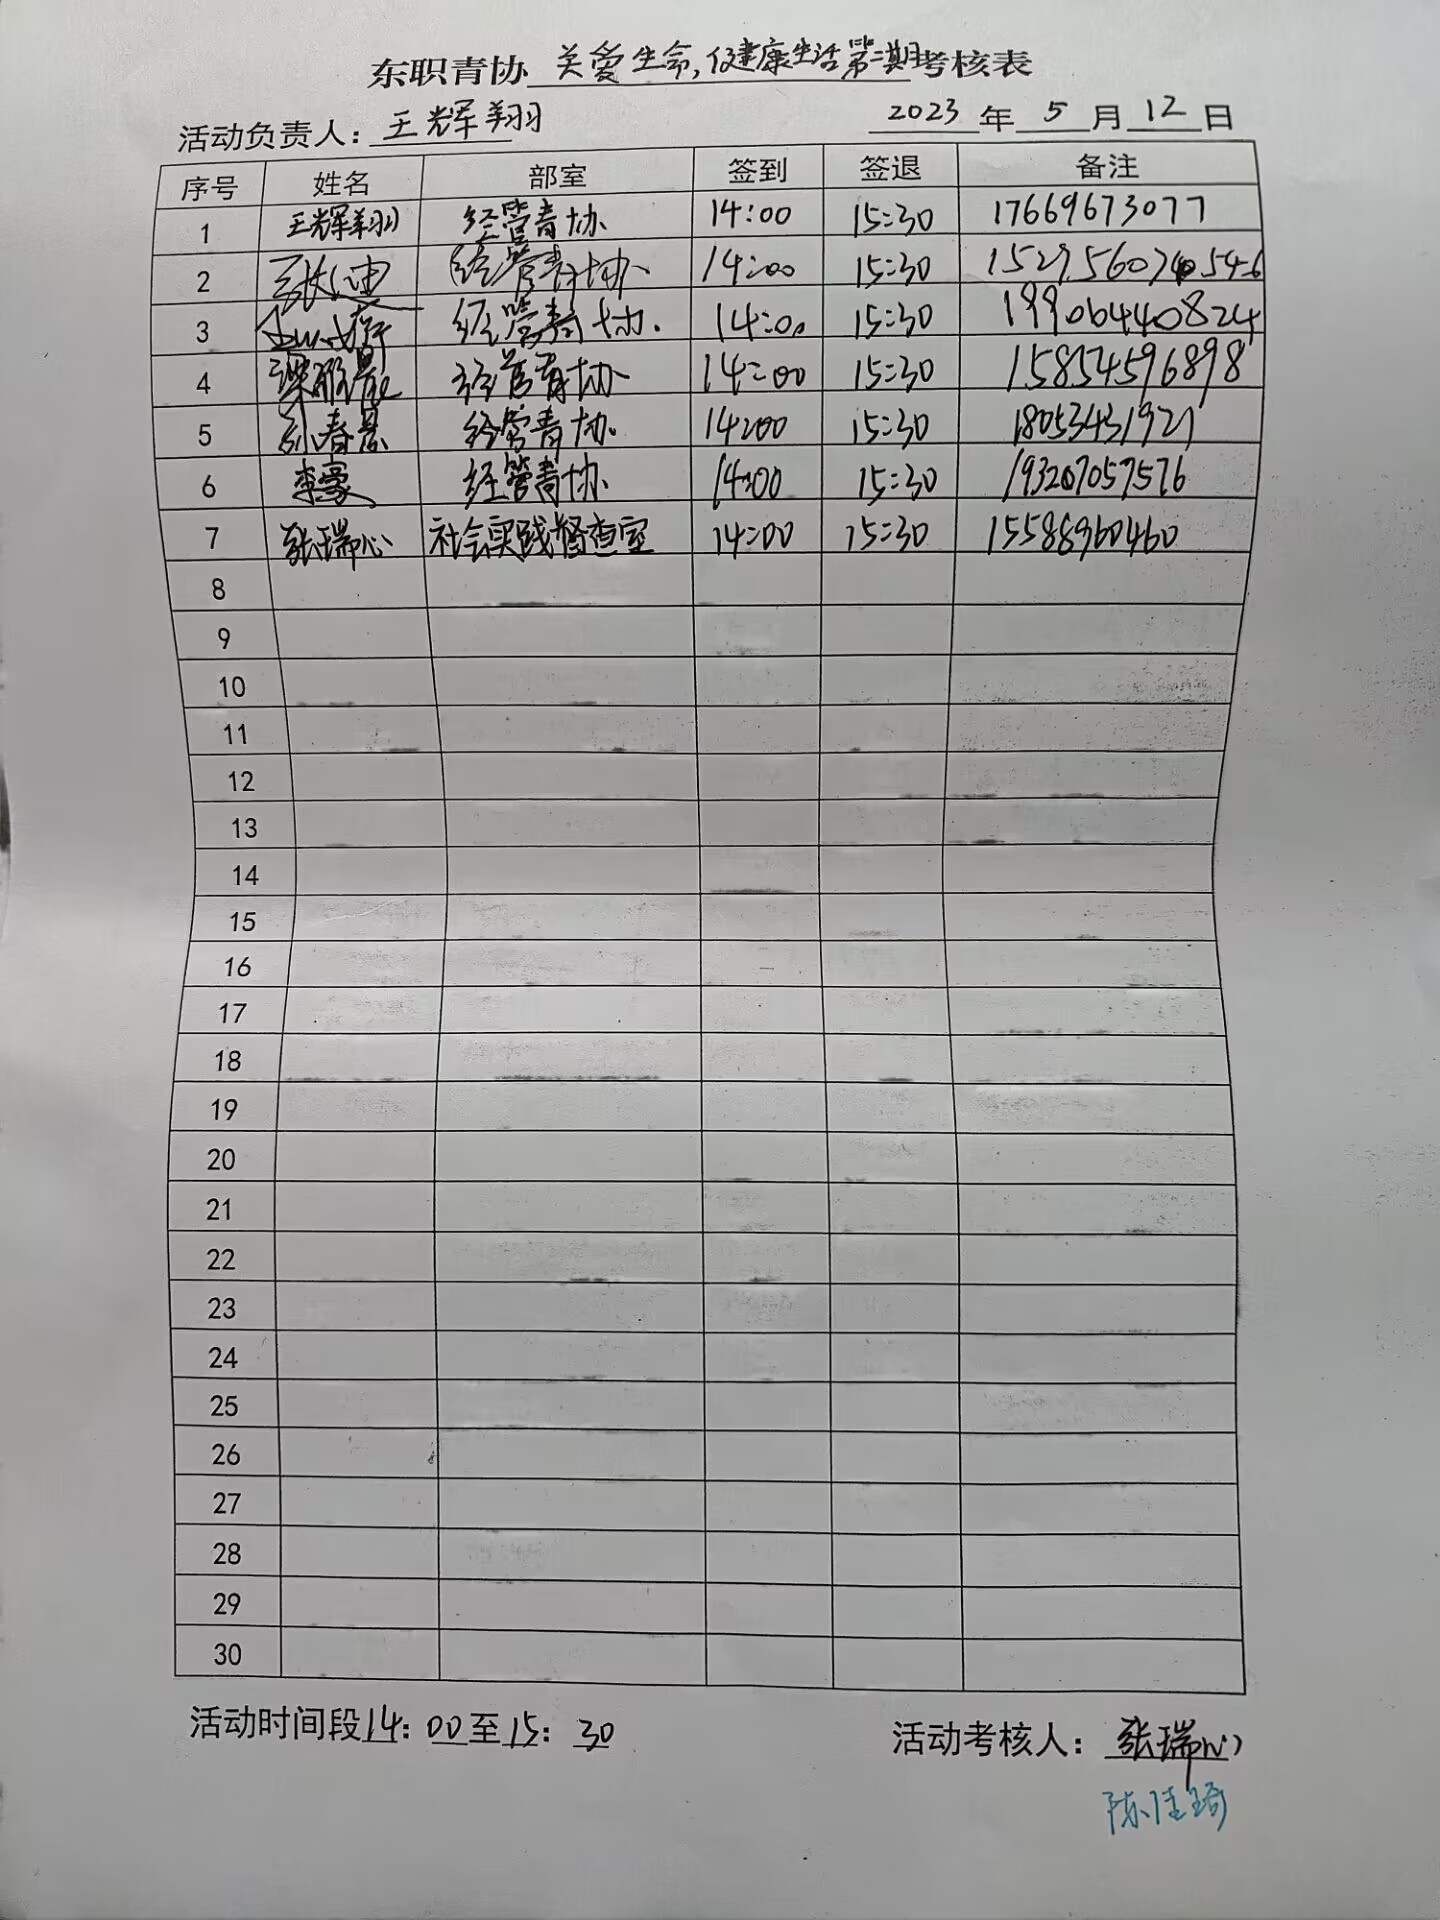 东职青协 关爱生命,健康生活第二期 考核表
活动负责人: 王辉翔 2023 年 5 月 12 日
序号 姓名 部室 签到 签退 备注
1 王辉翔 经管青协 14:00 15:30 17669673077
2 张迪 经管青协 14:00 15:30
3 经管青协. 14:00 15:30 19906440824
4 经管青协 14:00 15:30 15854596898
5 孙春景 经管青协. 14:00 15:30 18053431921
6 李豪 经管青协 14:00 15:30 193207057576
7 张瑞心 社会实践督查室 14:00 15:30 15588960460
8
9
10
11
12
13
14
15
16
17
18
19
20
21
22
23
24
25
26
27
28
29
30
活动时间段14: 00至15: 30 活动考核人: 张瑞心
陈佳琦